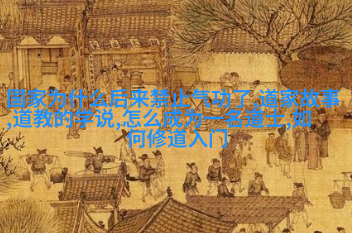 国家为什么后来禁止气功了,道家故事
,道教的学说,怎么成为一名道士,如
何修道入门